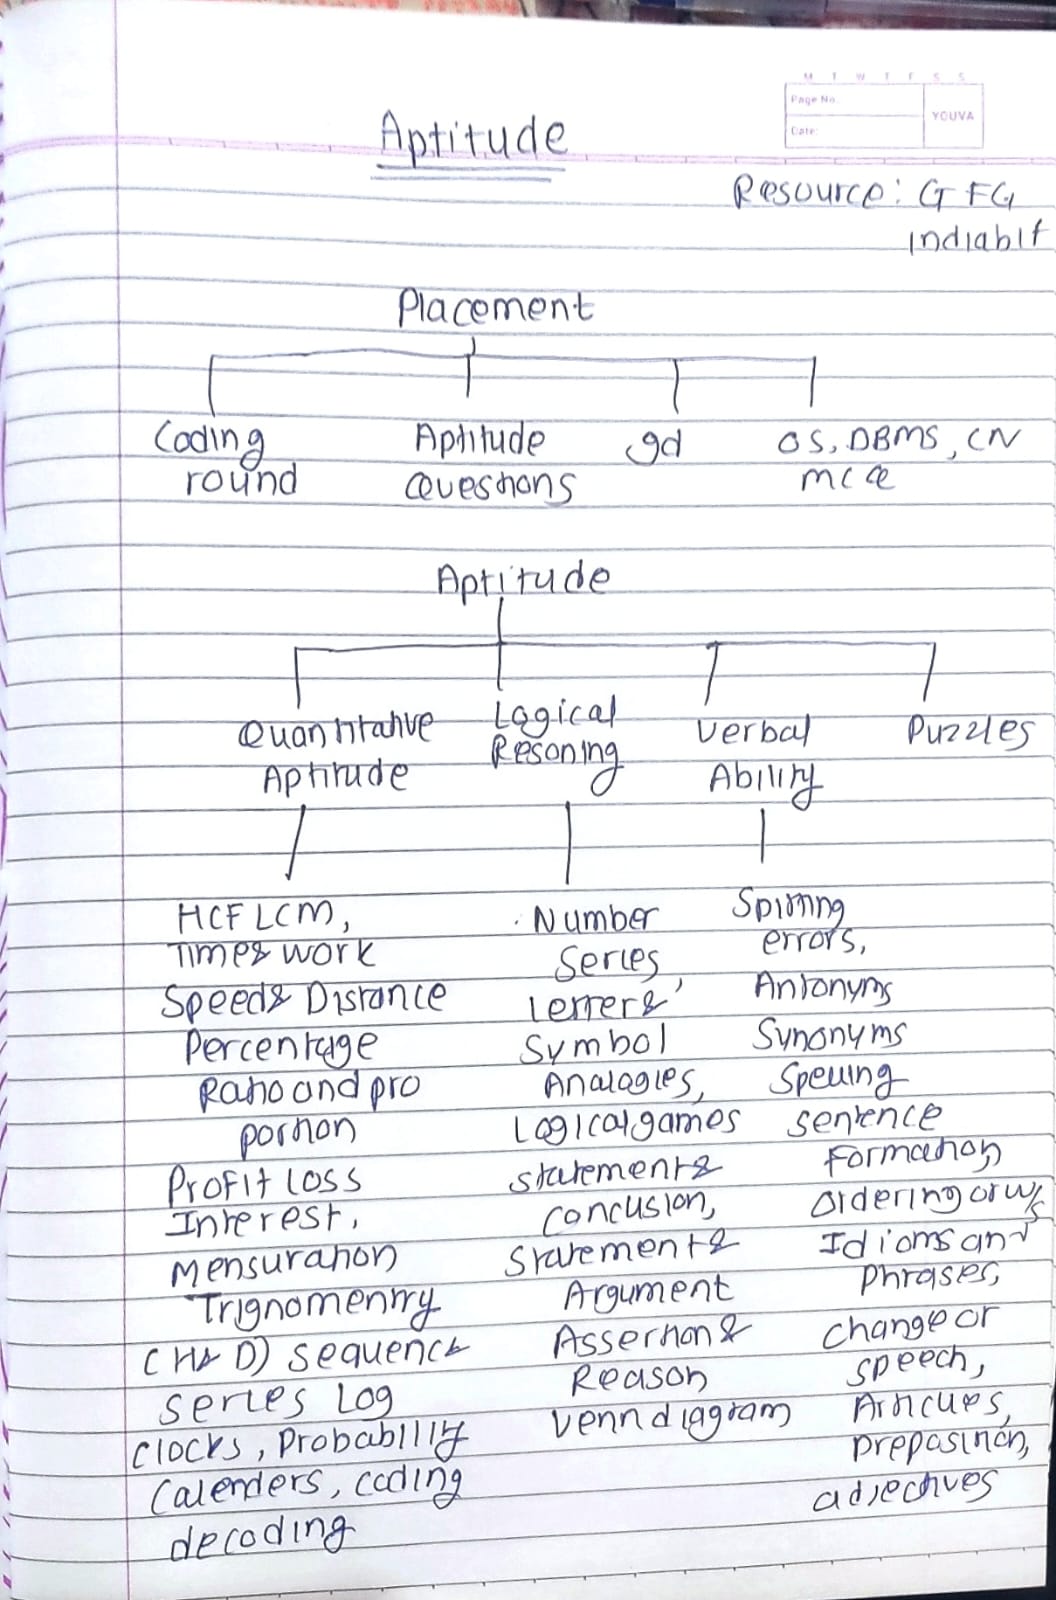 M T W T F S S
Page No.
YOUVA
Date:
Aptitude
Resource: GFG
indiabit
Placement
Coding round
Aptitude Questions
gd
OS, DBMS, CN
MCQ
Aptitude
Quantitative Aptitude
Logical Resoning
Verbal Ability
Puzzles
HCF LCM,
Time & work
Speed & Distance
Percentage
Ratio and pro
portion
Profit loss
Interest,
Mensuration
Trignomentry
(H& D) sequence
series Log
Clocks, Probability
Calenders, coding
decoding
Number
Series,
letter &
Symbol
Analogies,
Logical games
statement &
conclusion,
Statement &
Argument
Assertion &
Reason
Venn diagram
errors,
Antonyms
Synonyms
Spelling
sentence
Formation,
ordering of w/s
Idioms and
Phrases,
change of
speech,
Articles,
preposition,
adjectives